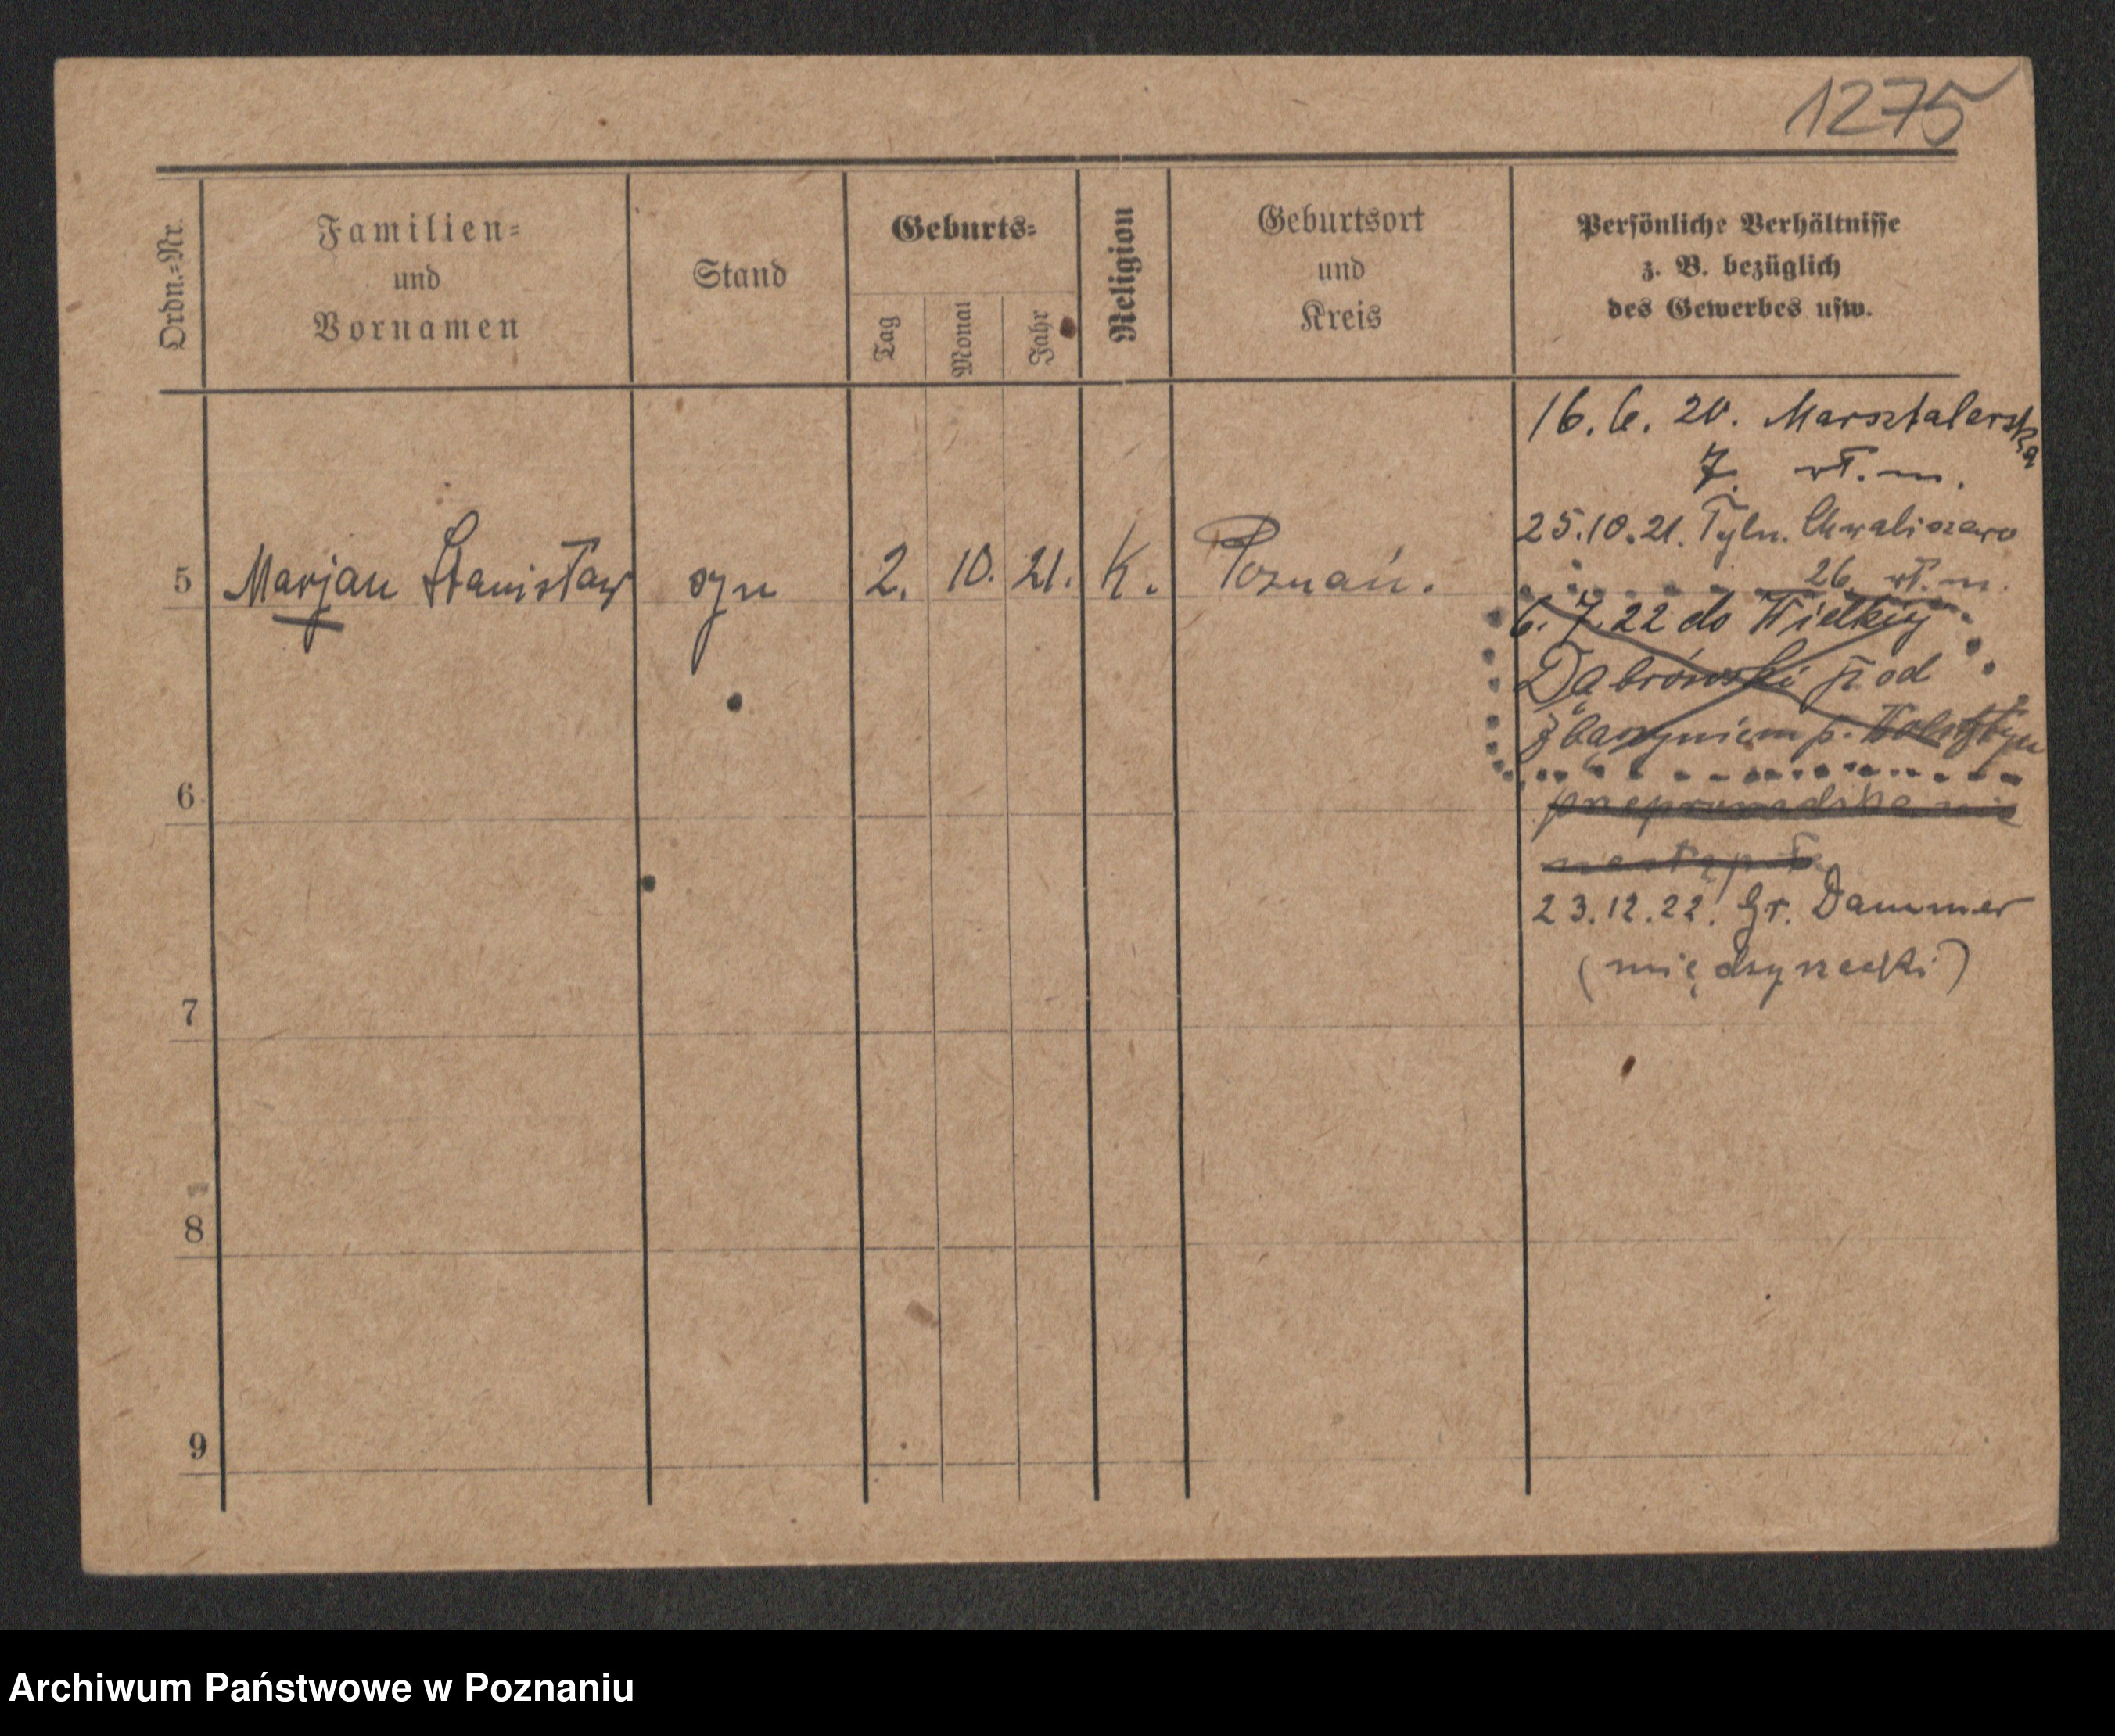 1275
Ordn.=Nr.
Familien=
und
Vornamen
Stand
Geburts=
Tag
Monat
Jahr
Religion
Geburtsort
und
Kreis
Persönliche Verhältnisse
z. B. bezüglich
des Gewerbes usw.
16. 6. 20. Marsztalerska
7. wł. m.
25.10.21. Tyln. Chwaliszewo
26 wł. m.
5 Marjan Stanisław syn 2. 10. 21. K. Poznań.
6. 7. 22 do Wielkiej
Dąbrówski pod
Zbaszyniem p. Wolsztyn
6
przeprowadzka nie
nastąpiła
23.12.22. Gr. Dammer
(międzyrzecki)
7
8
9
Archiwum Państwowe w Poznaniu